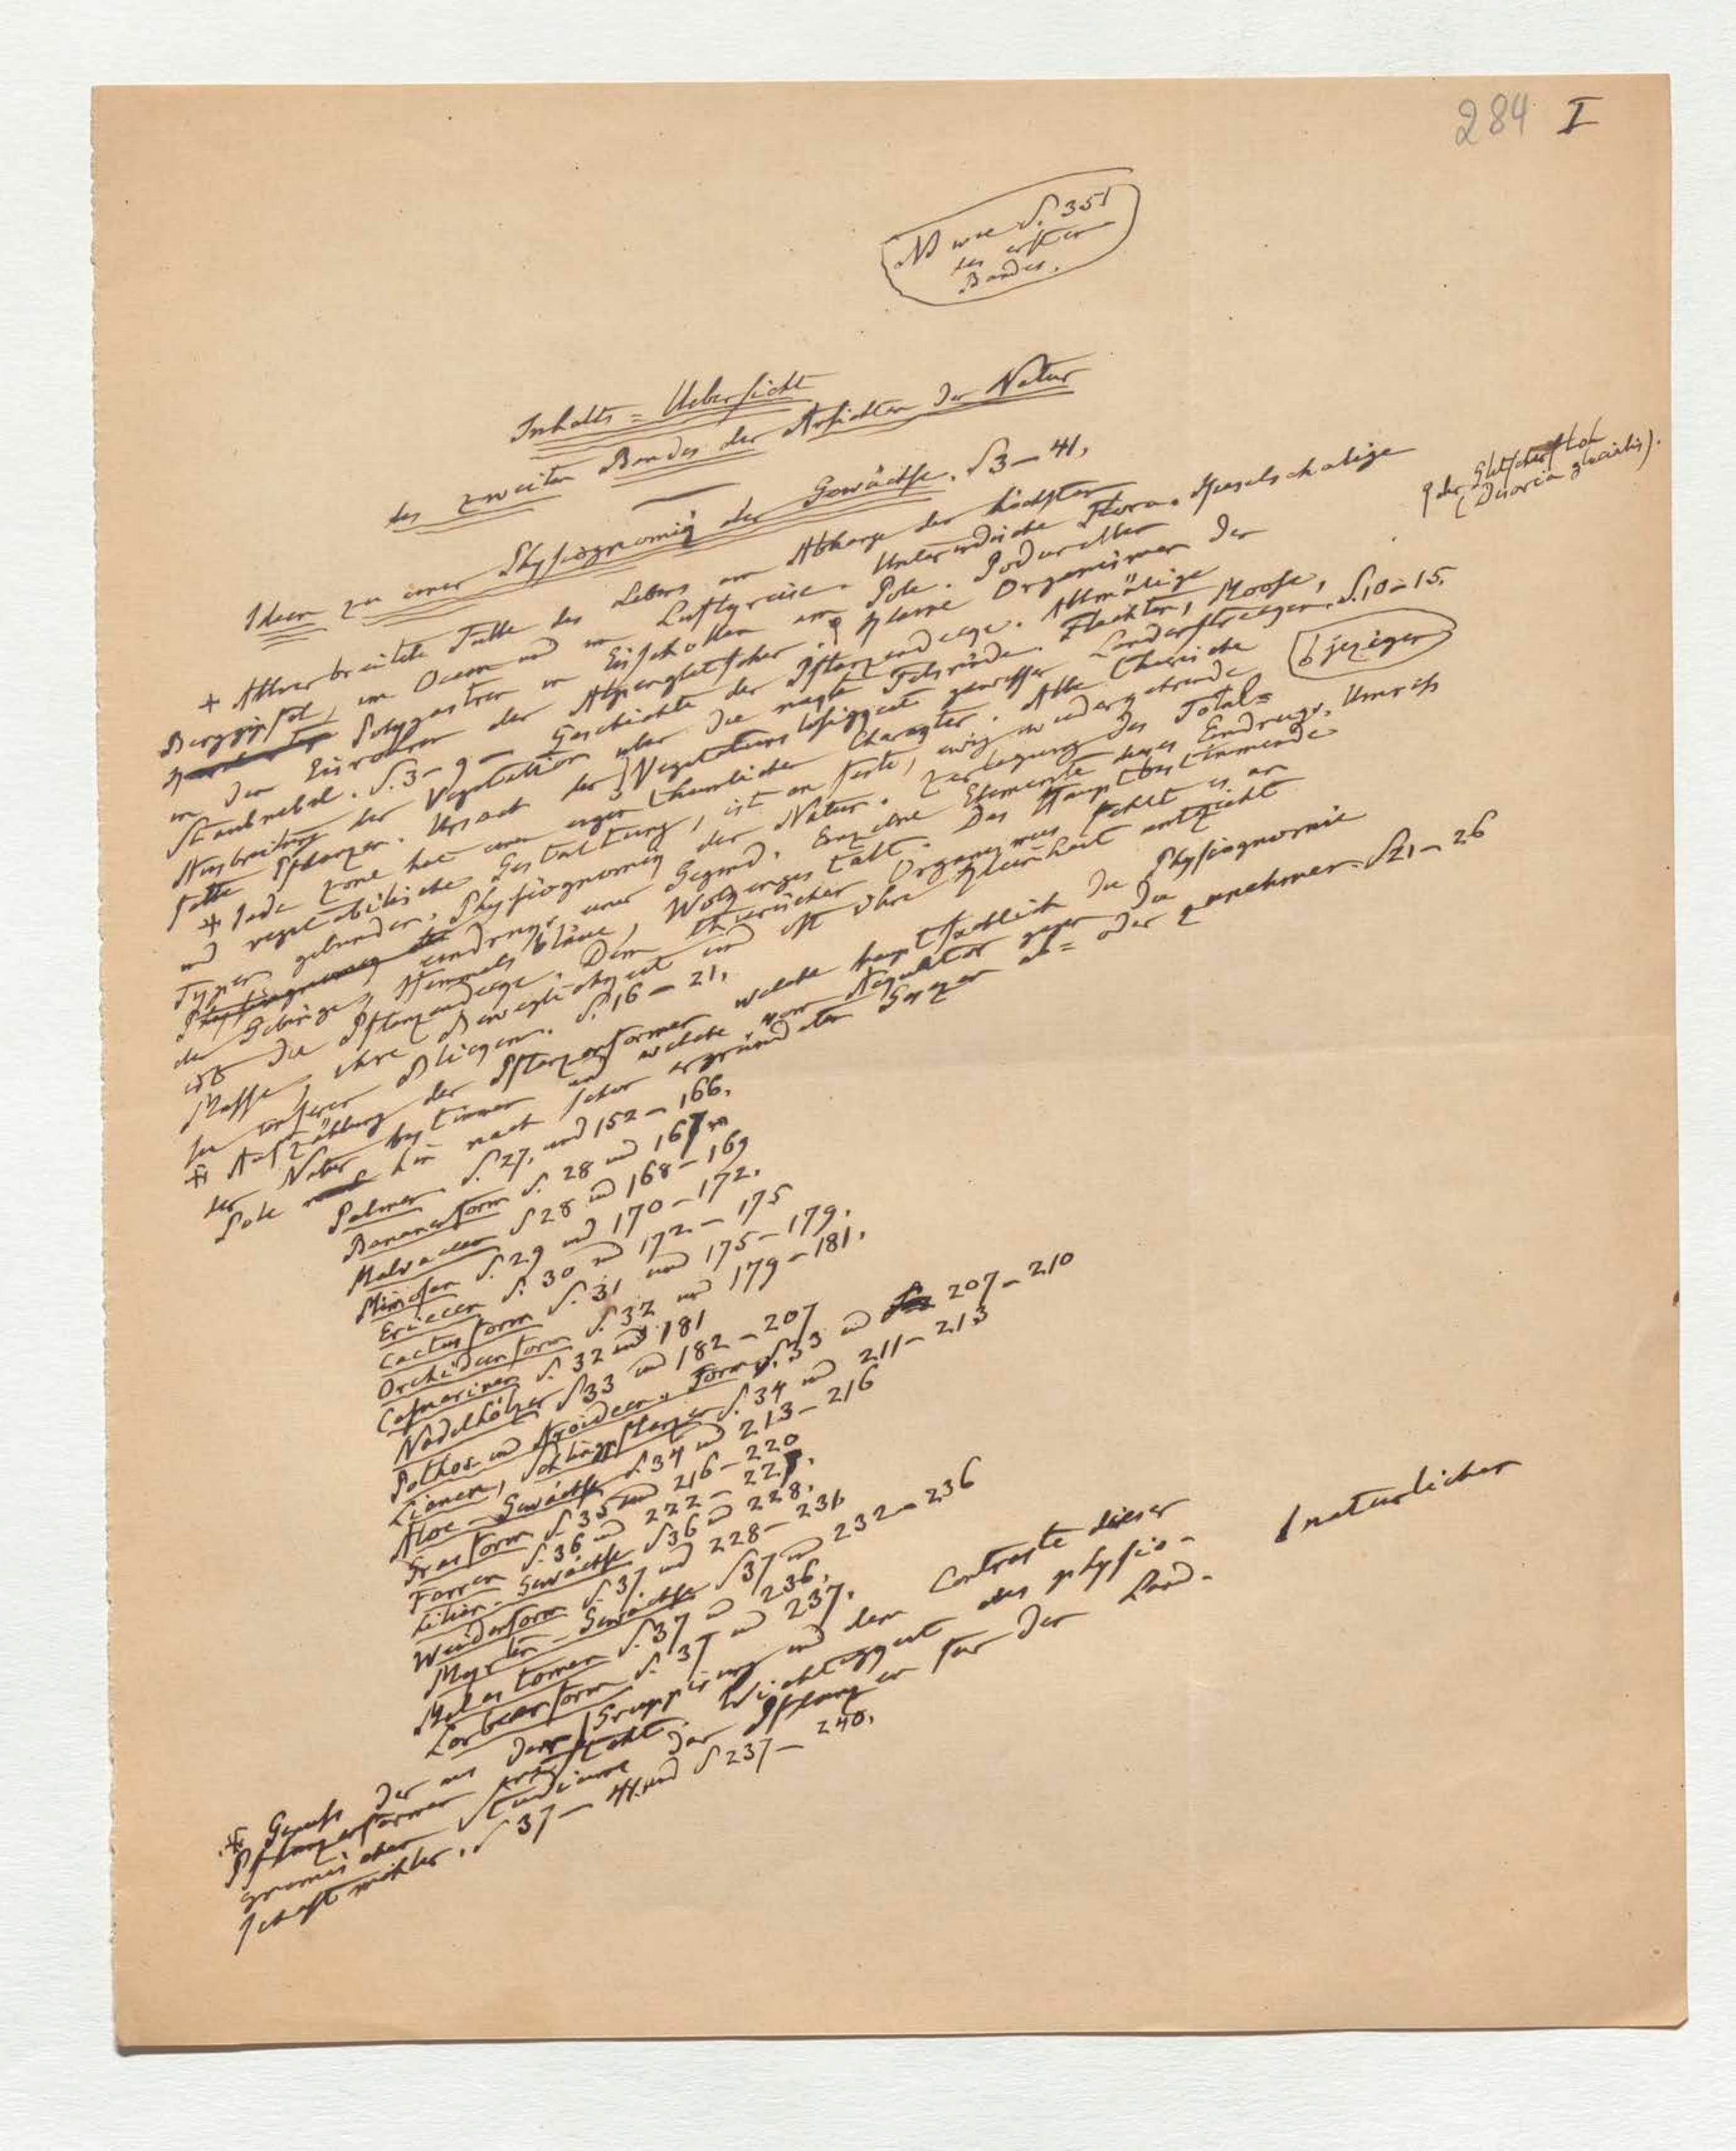 284 I
NB wie S. 351
des ersten
Bandes.
Inhalts=Uebersicht
des zweiten Bandes der Ansichten der Natur
Ideen zu einer Physiognomik der Gewächse. S 3–41.
* Allverbreitete Fülle des Lebens am Abhange der höchsten
Berggipfel, im Ocean und im Luftkreise. Unterirdische Flora. Kieselschalige
Polygastren in Eisschollen am Pole. Podurellen
in den Eisröhren der Alpengletscher; kleine Organismen der
der Gletscherfloh
(Desoria glacialis).
Staubnebel. S. 3–9 – Geschichte der Pflanzendecke. Allmälige
Ausbreitung der Vegetation über die nackte Felsrinde. Flechten, Moose,
fette Pflanzen. Ursach der Vegetationslosigkeit gewisser Länderstrecken. S. 10–15.
jeziger
* Jede Zone hat einen eigenthümlichen Charakter. Alle thierische
und vegetabilische Gestaltung, ist an feste, ewig wiederkehrende
Typen gebunden. Physiognomik der Natur. Zerlegung des Total=
eindrucks einer Gegend. Einzelne Elemente dieses Eindrucks. Umriss
der Gebirge, Himmelsbläue, Wolkengestalt. Das Hauptbestimmende
ist die Pflanzendecke. Dem thierischen Organismus fehlt es an
Masse; ihre Beweglichkeit und oft ihre Kleinheit entzieht
sie unseren Blicken. S. 16–21.
* Aufzählung der Pflanzenformen welche hauptsächlich die Physiognomie
der Natur bestimmen und welche vom Aequator gegen die
Pole hin nach schon ergründeten Gesezen ab= oder zunehmen. S 21–26
Palmen S. 27, und 152–166.
Bananenform S. 28 und 167
Malvaceen S 28 und 168–169
Mimosen S. 29 und 170–172.
Ericeen S. 30 und 172–175
Cactusform S. 31 und 175–179.
Orchideenform S. 32 und 179–181.
Casuarinen S. 32 und 181
Nadelhölzer S 33 und 182–207
Pothos= und Aroideen=Form S. 33 und 207–210
Lianen, Schlingpflanzen S. 34 und 211–213
Aloe-Gewächse S 34 und 213–216
Grasform S. 35 und 216–220
Farren S. 36 und 222–227.
Lilien-Gewächse S 36 und 228.
Weidenform S. 37 und 228–231
Myrten-Gewächse S 37 und 232–236
Melastomen S. 37 und 236.
Lorbeerform S. 37 und 237.
* Genuss der aus der Gruppirung und dem Contraste dieser
natürlichen
Pflanzenformen entsteht. Wichtigkeit des physio-
gnomischen Studiums der Pflanzen für den Land-
schaftmahler. S 37–41 und S 237–240.